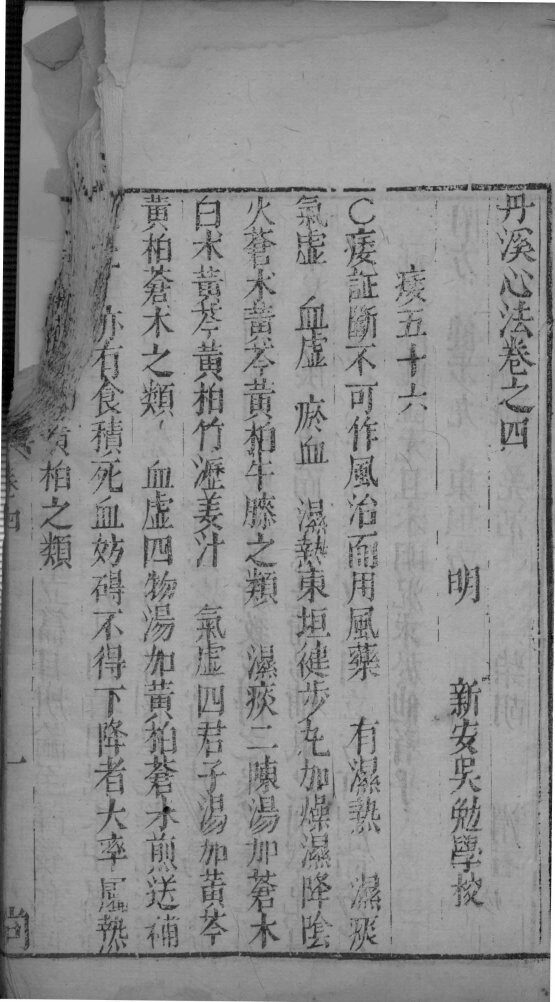 丹溪心法卷之四
明　新安吳勉學校
痿五十六
○痿証斷不可作風治而用風藥　有濕熱　濕痰
氣虛　血虛　瘀血　濕熱東垣健步丸加燥濕降陰
火蒼朮黃芩黃柏牛膝之類　濕痰二陳湯加蒼朮
白朮黃芩黃柏竹瀝姜汁　氣虛四君子湯加黃芩
黃柏蒼朮之類　血虛四物湯加黃柏蒼朮煎送補
亦有食積死血妨碍不得下降者大率屬熱
黃柏之類
卷四
一